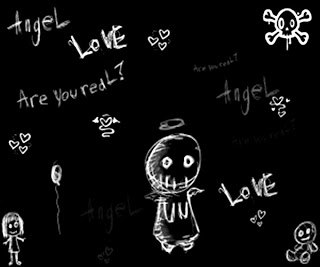 AngeL
LOVE
Are you reaL?
Are you reaL?
AngeL
Are you reaL?
AngeL
LOVE